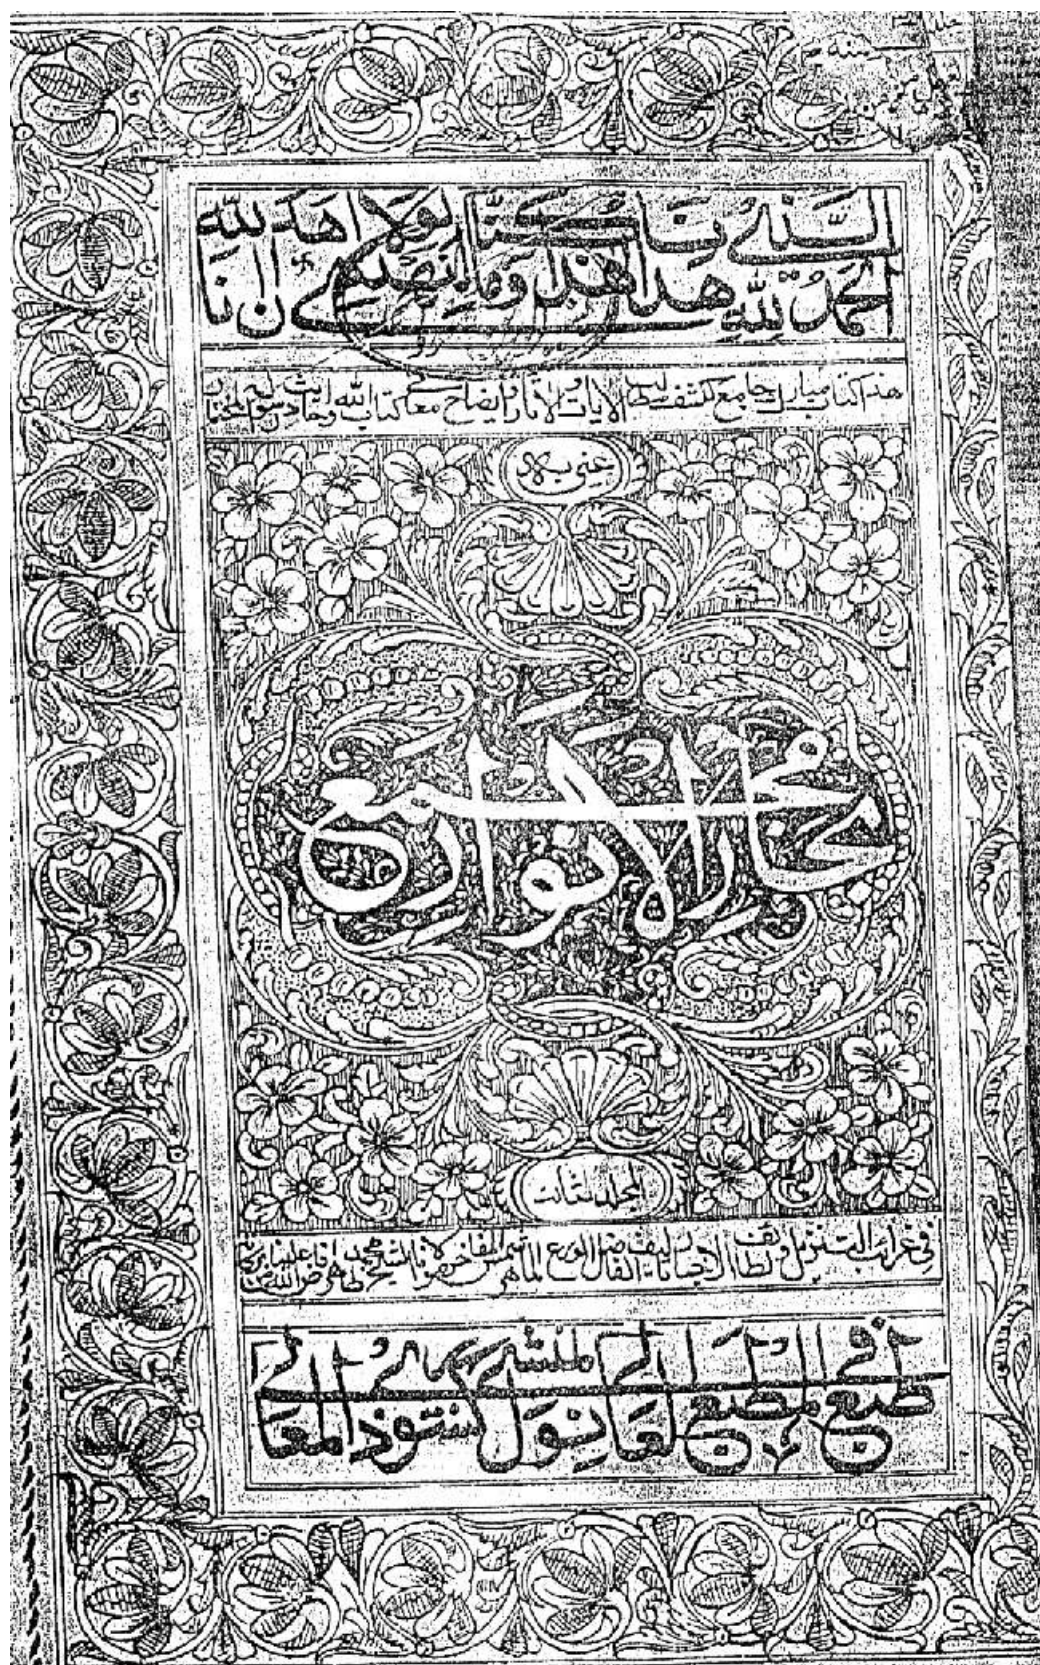 الحمد لله الذي هدانا لهذا وما كنا لنهتدي لولا ان هدانا الله
هذا كتاب مبارك جامع لكشف مطالب الايات والاثار وايضاح معاني كتاب الله واحاديث رسوله المختار
مجمع بحار الانوار
المجلد الثالث
في غرائب التنزيل ولطائف الاخبار تاليف الفاضل الورع الماهر شمس المفاخر مولانا الشيخ محمد طاهر
طبع في المطبع العالي لمنشي نولكشور